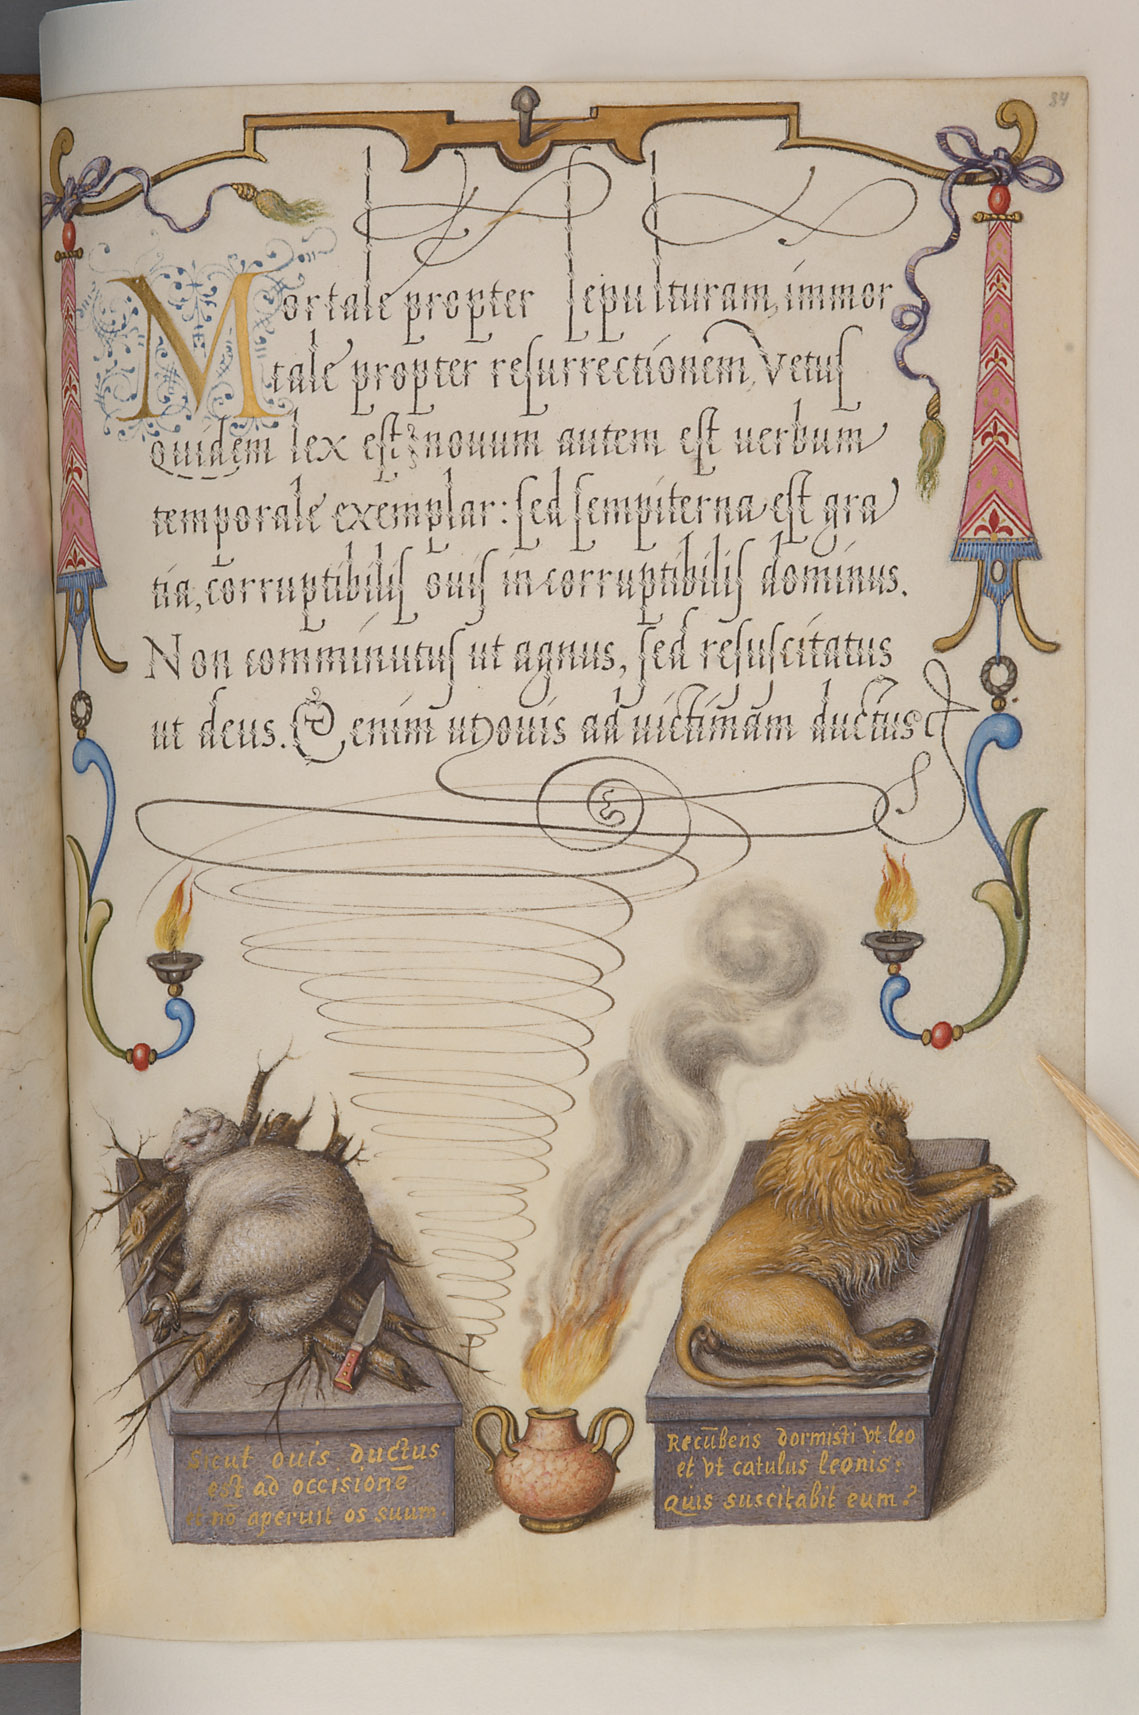 84
Mortale propter sepulturam, immor
tale propter resurrectionem, Vetus
quidem lex est; nouum autem est uerbum
temporale exemplar: sed sempiterna est gra
tia, corruptibilis ouis incorruptibilis dominus.
Non comminutus ut agnus, sed resuscitatus
ut deus. Etenim ut ouis ad uictimam ductus
Sicut ouis ductus
est ad occisionē
et nō aperuit os suum.
Recūbens dormisti vt leo
et vt catulus leonis:
quis suscitabit eum?